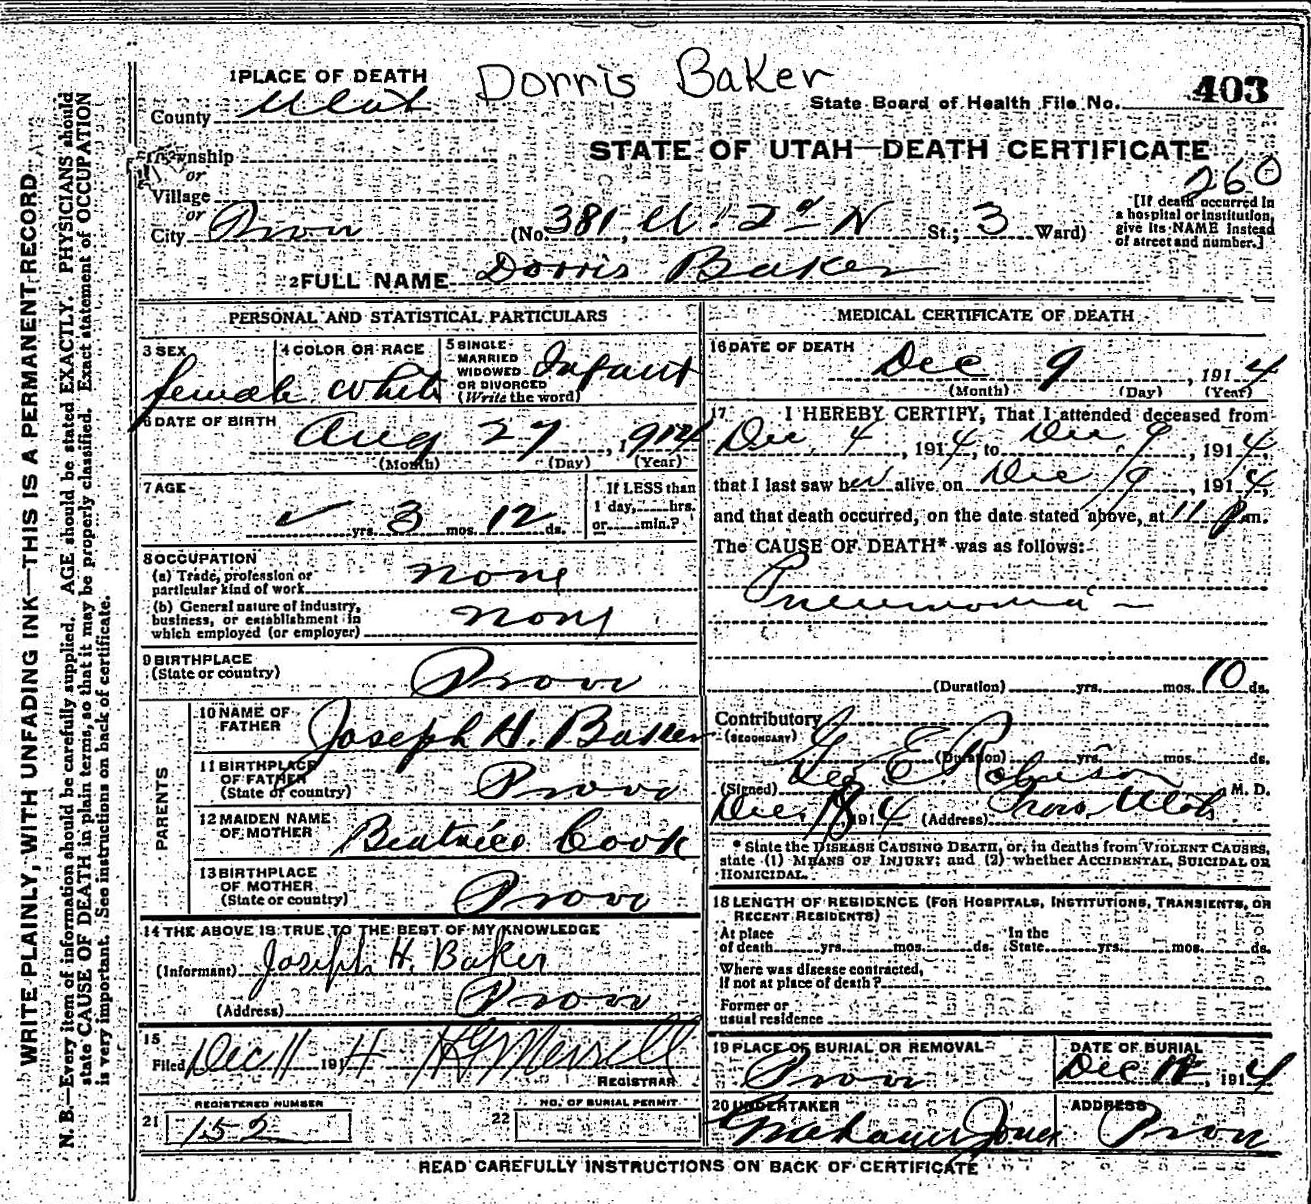 Dorris Baker
1 PLACE OF DEATH
County Utah
State Board of Health File No. 403
STATE OF UTAH—DEATH CERTIFICATE
260
Township
or
Village
or
City Provo (No. 381, W. 2d N St.; 3 Ward)
[If death occurred in a hospital or institution, give its NAME instead of street and number.]
2 FULL NAME Dorris Baker
PERSONAL AND STATISTICAL PARTICULARS
3 SEX female
4 COLOR OR RACE White
5 SINGLE MARRIED WIDOWED OR DIVORCED (Write the word) Infant
6 DATE OF BIRTH
Aug 27, 1914
(Month) (Day) (Year)
7 AGE
✓ yrs. 3 mos. 12 ds.
If LESS than 1 day, hrs. or min.?
8 OCCUPATION
(a) Trade, profession or particular kind of work none
(b) General nature of industry, business, or establishment in which employed (or employer) none
9 BIRTHPLACE (State or country) Provo
PARENTS
10 NAME OF FATHER Joseph H. Baker
11 BIRTHPLACE OF FATHER (State or country) Provo
12 MAIDEN NAME OF MOTHER Beatrice Cook
13 BIRTHPLACE OF MOTHER (State or country) Provo
14 THE ABOVE IS TRUE TO THE BEST OF MY KNOWLEDGE
(Informant) Joseph H. Baker
(Address) Provo
15
Filed Dec 11 1914 H G Merrill
REGISTRAR
REGISTERED NUMBER
21 152
NO. OF BURIAL PERMIT
22
MEDICAL CERTIFICATE OF DEATH
16 DATE OF DEATH
Dec 9, 1914
(Month) (Day) (Year)
17 I HEREBY CERTIFY, That I attended deceased from
Dec 4, 1914, to Dec 9, 1914,
that I last saw her alive on Dec 9, 1914,
and that death occurred, on the date stated above, at 11 P m.
The CAUSE OF DEATH* was as follows:
Pneumonia
(Duration) yrs. mos. 10 ds.
Contributory
(SECONDARY)
(Duration) yrs. mos. ds.
(Signed) Geo E Robison M. D.
Dec. 1914 (Address) Provo Utah
* State the DISEASE CAUSING DEATH, or, in deaths from VIOLENT CAUSES,
state (1) MEANS OF INJURY; and (2) whether ACCIDENTAL, SUICIDAL OR
HOMICIDAL.
18 LENGTH OF RESIDENCE (FOR HOSPITALS, INSTITUTIONS, TRANSIENTS, OR
RECENT RESIDENTS)
At place of death yrs. mos. ds. In the State yrs. mos. ds.
Where was disease contracted,
if not at place of death?
Former or
usual residence
19 PLACE OF BURIAL OR REMOVAL
Provo
DATE OF BURIAL
Dec, 1914
20 UNDERTAKER
Jones
ADDRESS
Provo
READ CAREFULLY INSTRUCTIONS ON BACK OF CERTIFICATE
WRITE PLAINLY, WITH UNFADING INK—THIS IS A PERMANENT RECORD
N. B.—Every item of information should be carefully supplied. AGE should be stated EXACTLY. PHYSICIANS should
state CAUSE OF DEATH in plain terms, so that it may be properly classified. Exact statement of OCCUPATION
is very important. See instructions on back of certificate.